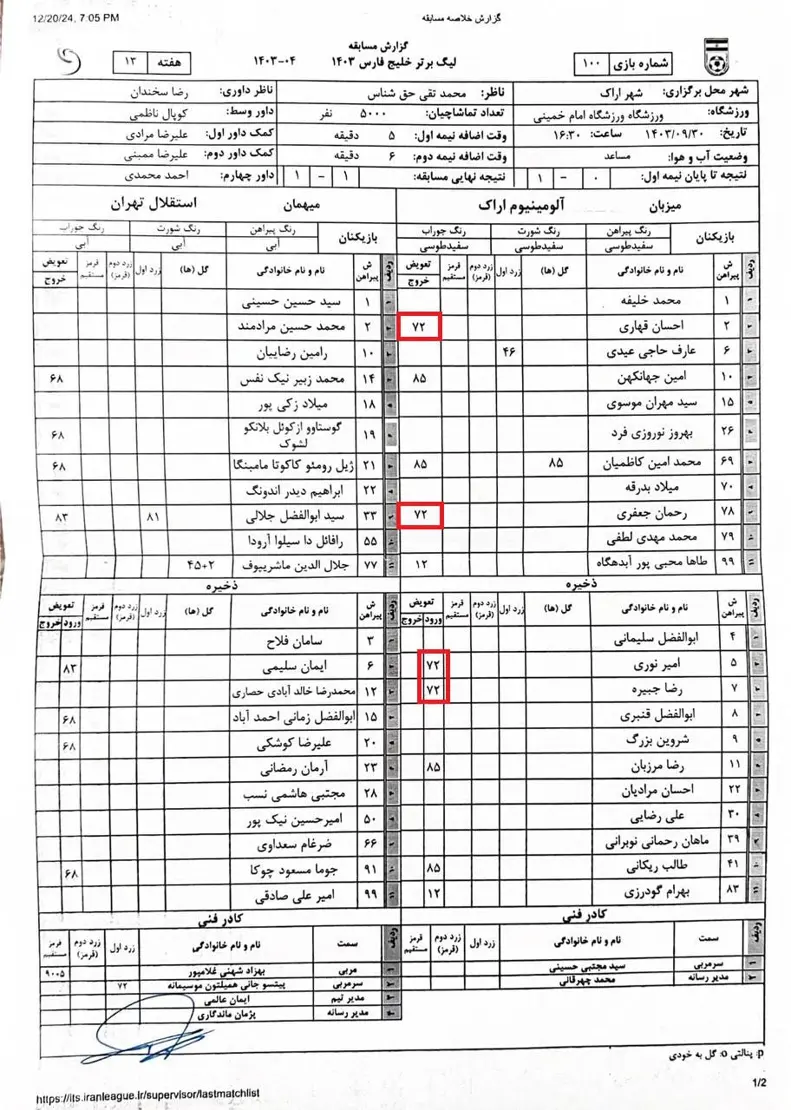 12/20/24, 7:05 PM
گزارش خلاصه مسابقه
گزارش مسابقه
شماره بازی ۱۰۰
لیگ برتر خلیج فارس ۱۴۰۳ ۰۴-۱۴۰۳
هفته ۱۳
شهر محل برگزاری: شهر اراک
ناظر: محمد تقی حق شناس
ناظر داوری: رضا سخندان
ورزشگاه: ورزشگاه امام خمینی
تعداد تماشاچیان: ۵۰۰۰ نفر
داور وسط: کوپال ناظمی
تاریخ: ۱۴۰۳/۰۹/۳۰ ساعت: ۱۶:۳۰
وقت اضافه نیمه اول: ۵ دقیقه
کمک داور اول: علیرضا مرادی
وضعیت آب و هوا: مساعد
وقت اضافه نیمه دوم: ۶ دقیقه
کمک داور دوم: علیرضا ممبنی
نتیجه تا پایان نیمه اول: ۰ - ۱
نتیجه نهایی مسابقه: ۱ - ۱
داور چهارم: احمد محمدی
میزبان آلومینیوم اراک
بازیکنان
رنگ پیراهن رنگ شورت رنگ جوراب
سفیدطوسی سفیدطوسی سفیدطوسی
ردیف ش پیراهن نام و نام خانوادگی گل (ها) زرد اول زرد دوم (قرمز) قرمز مستقیم تعویض خروج
۱ ۱ محمد خلیفه
۲ ۲ احسان قهاری ۷۲
۳ ۶ عارف حاجی عیدی ۴۶
۴ ۱۰ امین جهانکهن ۸۵
۵ ۱۵ سید مهران موسوی
۶ ۲۶ بهروز نوروزی فرد
۷ ۶۹ محمد امین کاظمیان ۸۵ ۸۵
۸ ۷۰ میلاد بدرقه
۹ ۷۸ رحمان جعفری ۷۲
۱۰ ۷۹ محمد مهدی لطفی
۱۱ ۹۹ طاها محبی پور آبدهگاه ۱۲
ذخیره
ردیف ش پیراهن نام و نام خانوادگی گل (ها) زرد اول زرد دوم (قرمز) قرمز مستقیم تعویض ورود خروج
۱ ۴ ابوالفضل سلیمانی
۲ ۵ امیر نوری ۷۲
۳ ۷ رضا جبیره ۷۲
۴ ۸ ابوالفضل قنبری
۵ ۹ شروین بزرگ
۶ ۱۱ رضا مرزبان ۸۵
۷ ۲۲ احسان مرادیان
۸ ۳۰ علی رضایی
۹ ۳۹ ماهان رحمانی نوبرانی
۱۰ ۴۱ طالب ریکانی ۸۵
۱۱ ۸۳ بهرام گودرزی ۱۲
کادر فنی
ردیف سمت نام و نام خانوادگی زرد اول زرد دوم (قرمز) قرمز مستقیم
۱ سرمربی سید مجتبی حسینی
۲ مدیر رسانه محمد چهرقانی
میهمان استقلال تهران
بازیکنان
رنگ پیراهن رنگ شورت رنگ جوراب
آبی آبی آبی
ردیف ش پیراهن نام و نام خانوادگی گل (ها) زرد اول زرد دوم (قرمز) قرمز مستقیم تعویض خروج
۱ ۱ سید حسین حسینی
۲ ۲ محمد حسین مرادمند
۳ ۱۰ رامین رضاییان
۴ ۱۴ محمد زبیر نیک نفس ۶۸
۵ ۱۸ میلاد زکی پور
۶ ۱۹ گوستاوو ازکوئل بلانکو لشوک ۶۸
۷ ۲۱ ژیل رومئو کاکوتا مامبنگا ۶۸
۸ ۲۲ ابراهیم دیدر اندونگ
۹ ۳۳ سید ابوالفضل جلالی ۸۱ ۸۳
۱۰ ۵۵ رافائل دا سیلوا آرودا
۱۱ ۷۷ جلال الدین ماشریپوف ۴۵+۲
ذخیره
ردیف ش پیراهن نام و نام خانوادگی گل (ها) زرد اول زرد دوم (قرمز) قرمز مستقیم تعویض ورود خروج
۱ ۳ سامان فلاح
۲ ۶ ایمان سلیمی ۸۳
۳ ۱۲ محمدرضا خالد آبادی حصاری
۴ ۱۵ ابوالفضل زمانی احمد آباد ۶۸
۵ ۲۰ علیرضا کوشکی ۶۸
۶ ۲۳ آرمان رمضانی
۷ ۲۸ مجتبی هاشمی نسب
۸ ۵۰ امیرحسین نیک پور
۹ ۶۶ ضرغام سعداوی
۱۰ ۹۱ جوما مسعود چوکا ۶۸
۱۱ ۹۹ امیر علی صادقی
کادر فنی
ردیف سمت نام و نام خانوادگی زرد اول زرد دوم (قرمز) قرمز مستقیم
۱ مربی بهزاد شهنی غلامپور ۹۰+۵
۲ سرمربی پیتسو جانی همیلتون موسیمانه ۷۲
۳ مدیر تیم ایمان عالمی
۴ مدیر رسانه پژمان ماندگاری
p: پنالتی o: گل به خودی
https://its.iranleague.ir/supervisor/lastmatchlist
1/2